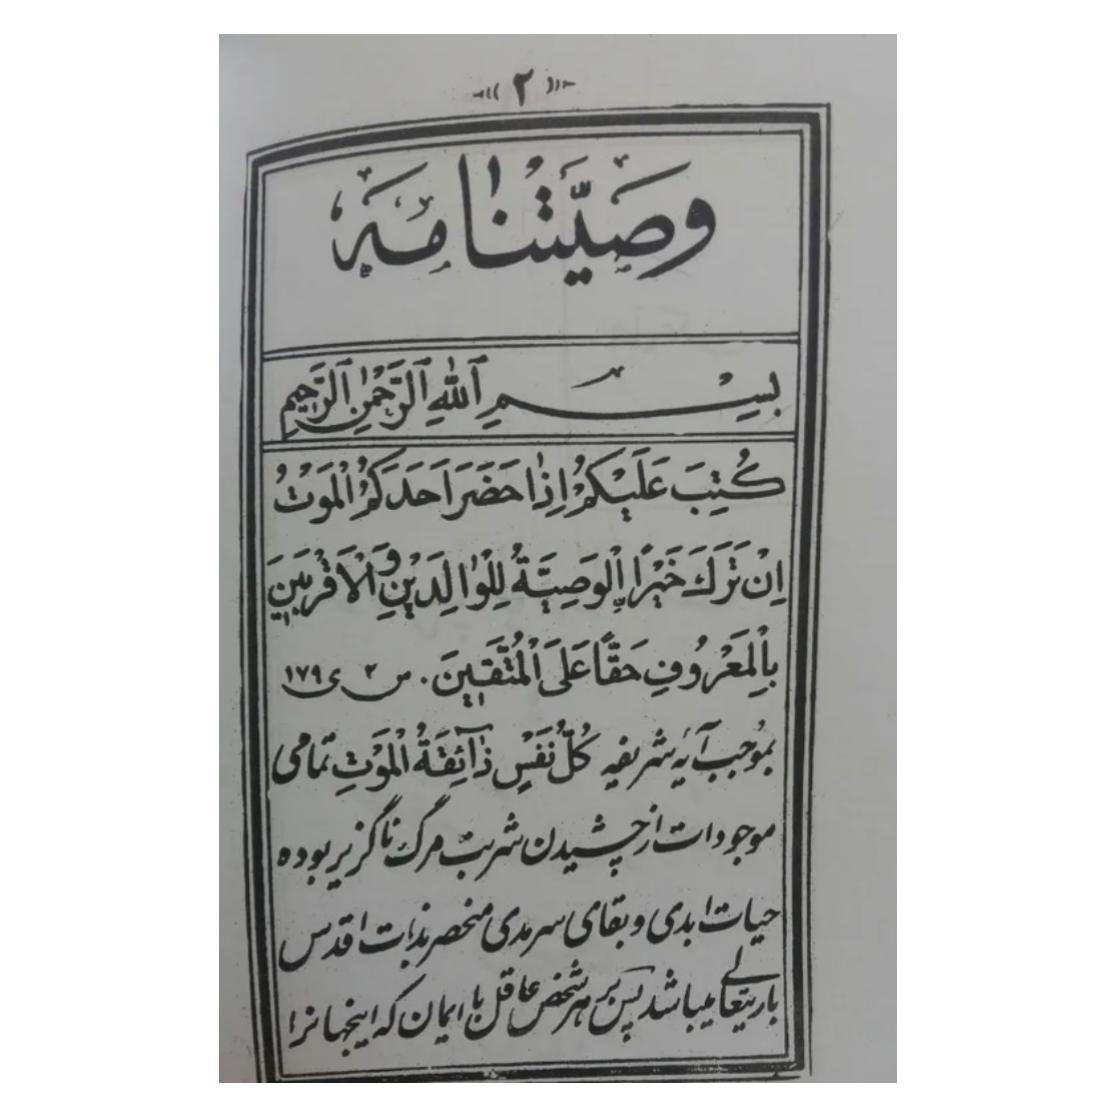 «۲»
وَصِیَّتْنَامَه
بِسْمِ ٱللّٰهِ ٱلرَّحْمٰنِ ٱلرَّحِیمِ
كُتِبَ عَلَیْكُمْ اِذٰا حَضَرَ اَحَدَكُمُ الْمَوْتُ
اِنْ تَرَكَ خَیْرًا اِلْوَصِیَّةُ لِلْوٰالِدَیْنِ وَالْاَقْرَبینَ
بِالْمَعْرُوفِ حَقًّا عَلَی الْمُتَّقینَ. س ۲ ی ۱۷۹
بموجب آیهٔ شریفه كُلُّ نَفْسٍ ذٰآئِقَةُ الْمَوْتِ تمامی
موجودات از چشیدن شربت مرگ ناگزیر بوده
حیات ابدی و بقای سرمدی منحصر بذات اقدس
باریتعالی میباشد پس بر هر شخص عاقل با ایمان که اینجهانرا